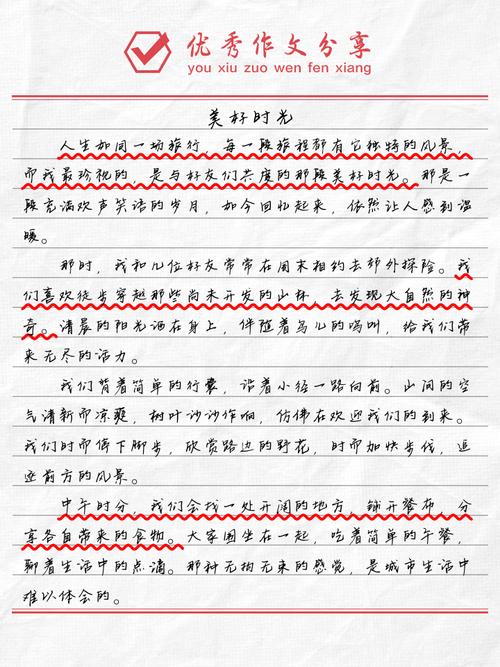 优秀作文分享
you xiu zuo wen fen xiang
美好时光
人生如同一场旅行，每一段旅程都有它独特的风景，
而我最珍视的，是与好友们共度的那段美好时光。那是一
段充满欢声笑语的岁月，如今回忆起来，依然让人感到温
暖。
那时，我和几位好友常常在周末相约去郊外探险。我
们喜欢徒步穿越那些尚未开发的山林，去发现大自然的神
奇。清晨的阳光洒在身上，伴随着鸟儿的鸣叫，给我们带
来无尽的活力。
我们背着简单的行囊，沿着小径一路向前。山间的空
气清新而凉爽，树叶沙沙作响，仿佛在欢迎我们的到来。
我们时而停下脚步，欣赏路边的野花，时而加快步伐，追
逐前方的风景。
中午时分，我们会找一处开阔的地方，铺开餐布，分
享各自带来的食物。大家围坐在一起，吃着简单的午餐，
聊着生活中的点滴。那种无拘无束的感觉，是城市生活中
难以体会的。